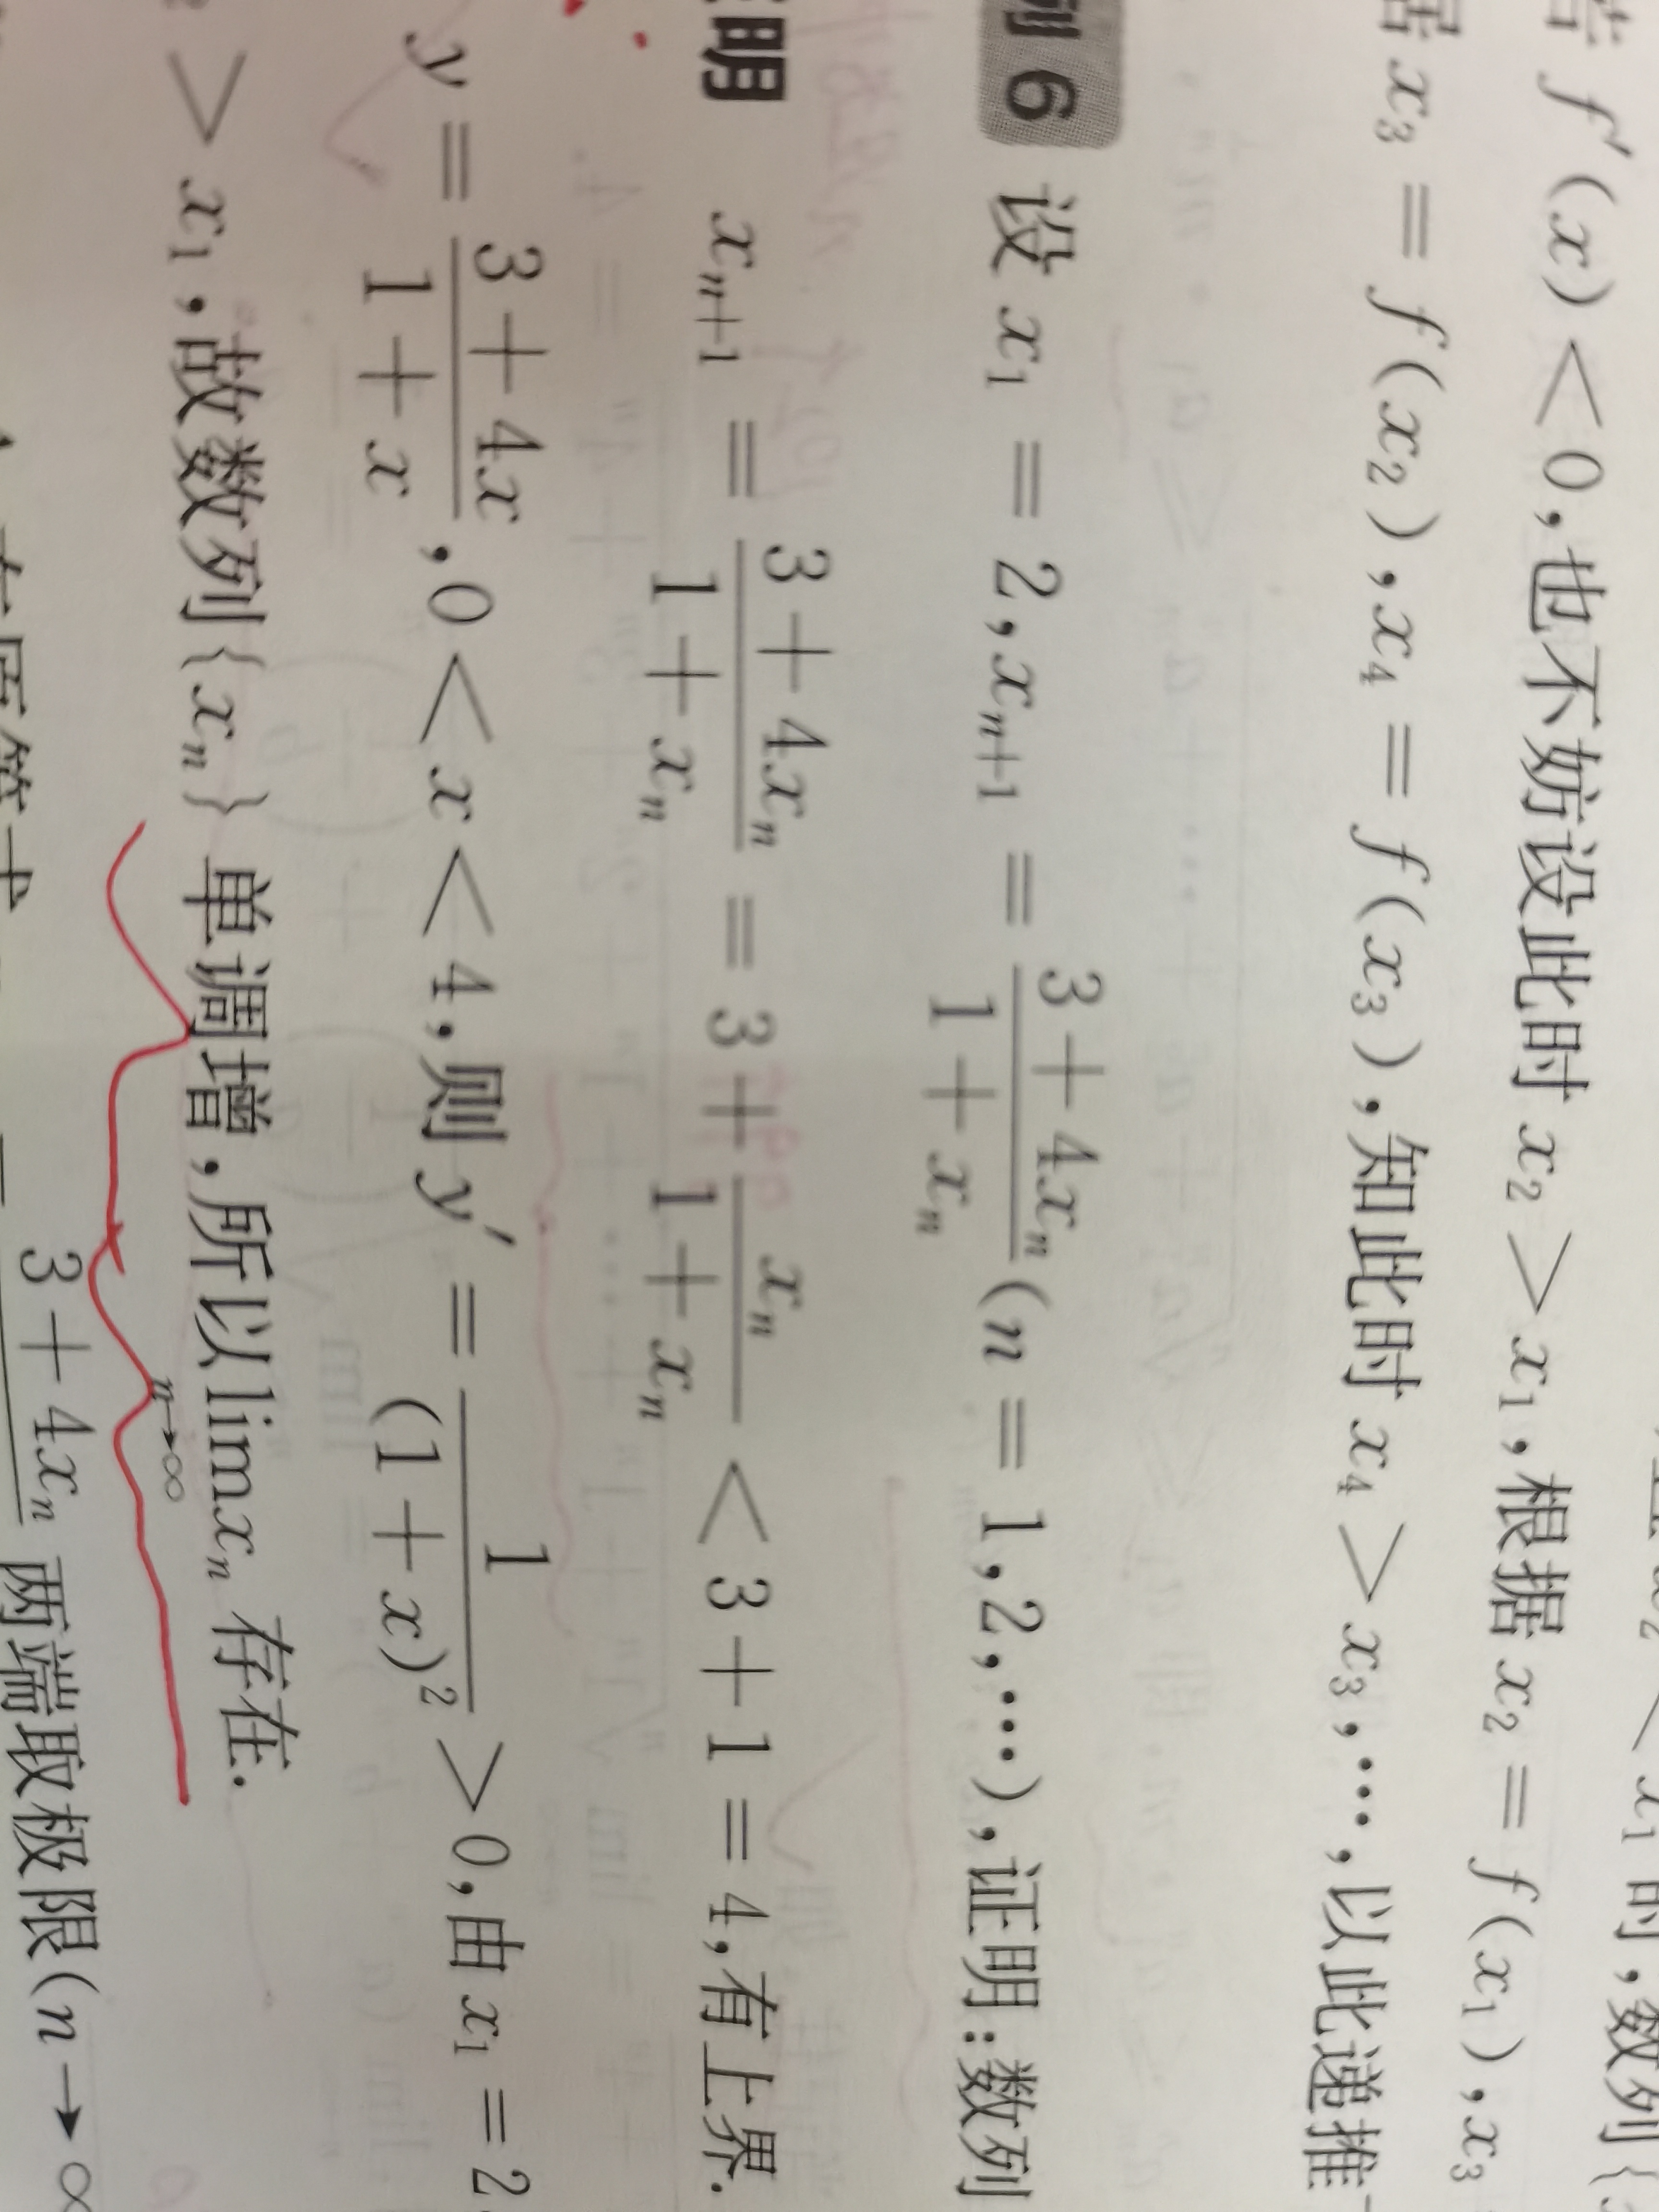 x₂ < x₁ 时,数列{
若 f′(x) < 0,也不妨设此时 x₂ > x₁,根据 x₂ = f(x₁),x₃
据 x₃ = f(x₂),x₄ = f(x₃),知此时 x₄ > x₃,…,以此递推
例 6 设 x₁ = 2,xₙ₊₁ = (3 + 4xₙ)/(1 + xₙ) (n = 1,2,…),证明:数列
证明 xₙ₊₁ = (3 + 4xₙ)/(1 + xₙ) = 3 + xₙ/(1 + xₙ) < 3 + 1 = 4,有上界.
y = (3 + 4x)/(1 + x),0 < x < 4,则 y′ = 1/(1 + x)² > 0,由 x₁ = 2,
> x₁,故数列{xₙ}单调增,所以 lim_{n→∞} xₙ 存在.
3 + 4xₙ 两端取极限(n → ∞